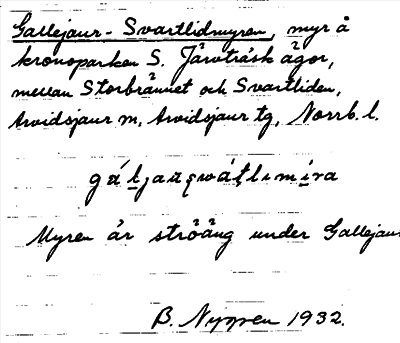 Gallejaur-Svartlidmyren, myr å
kronoparken S. Järvträsk ägor,
mellan Storbrännet och Svartliden,
Arvidsjaur m, Arvidsjaur tg, Norrb. l.
Myren är ströäng under Gallejaur
B. Nyppen 1932.